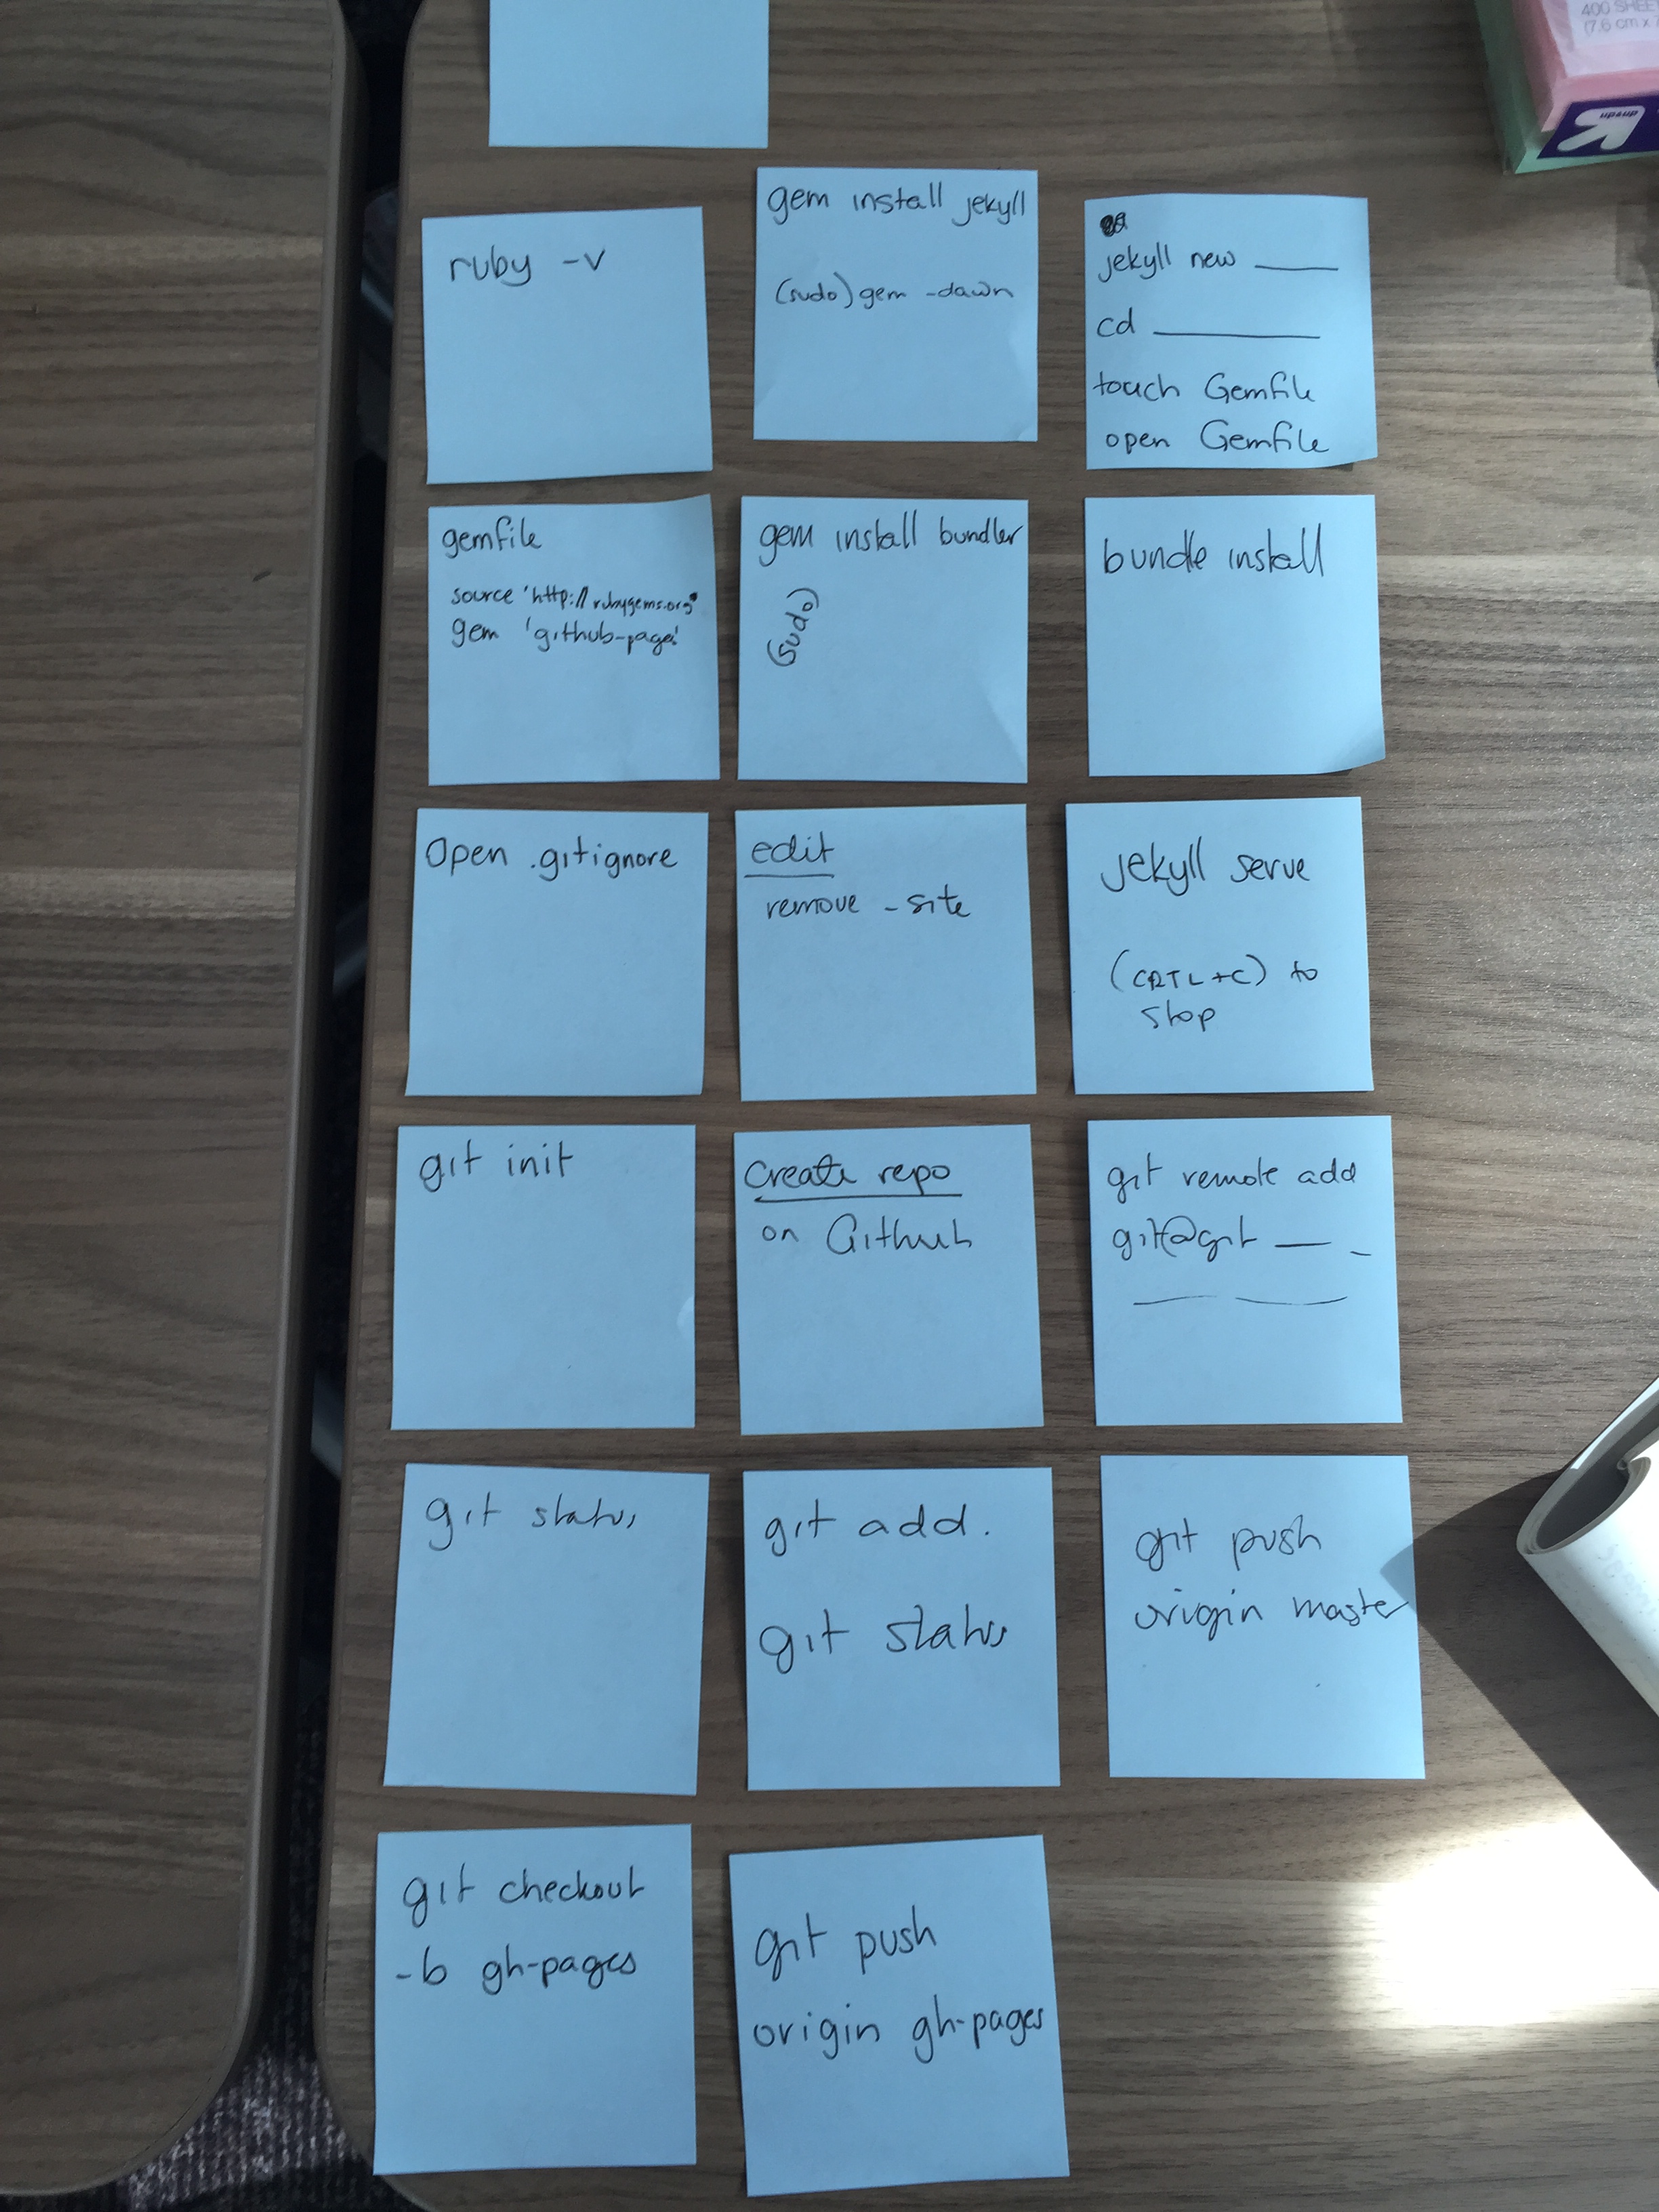 400 SHEE
(7.6 cm x 7
up&up
ruby -v
gem install jekyll
(sudo) gem -dawn
jekyll new ____
cd ________
touch Gemfile
open Gemfile
gemfile
source 'http://rubygems.org'
gem 'github-pages'
gem install bundler
(sudo)
bundle install
Open .gitignore
edit
remove _site
Jekyll serve
(CRTL+C) to
stop
git init
Create repo
on Github
git remote add
git@git ___ _
____ ____
git status
git add .
git status
git push
origin master
git checkout
-b gh-pages
git push
origin gh-pages